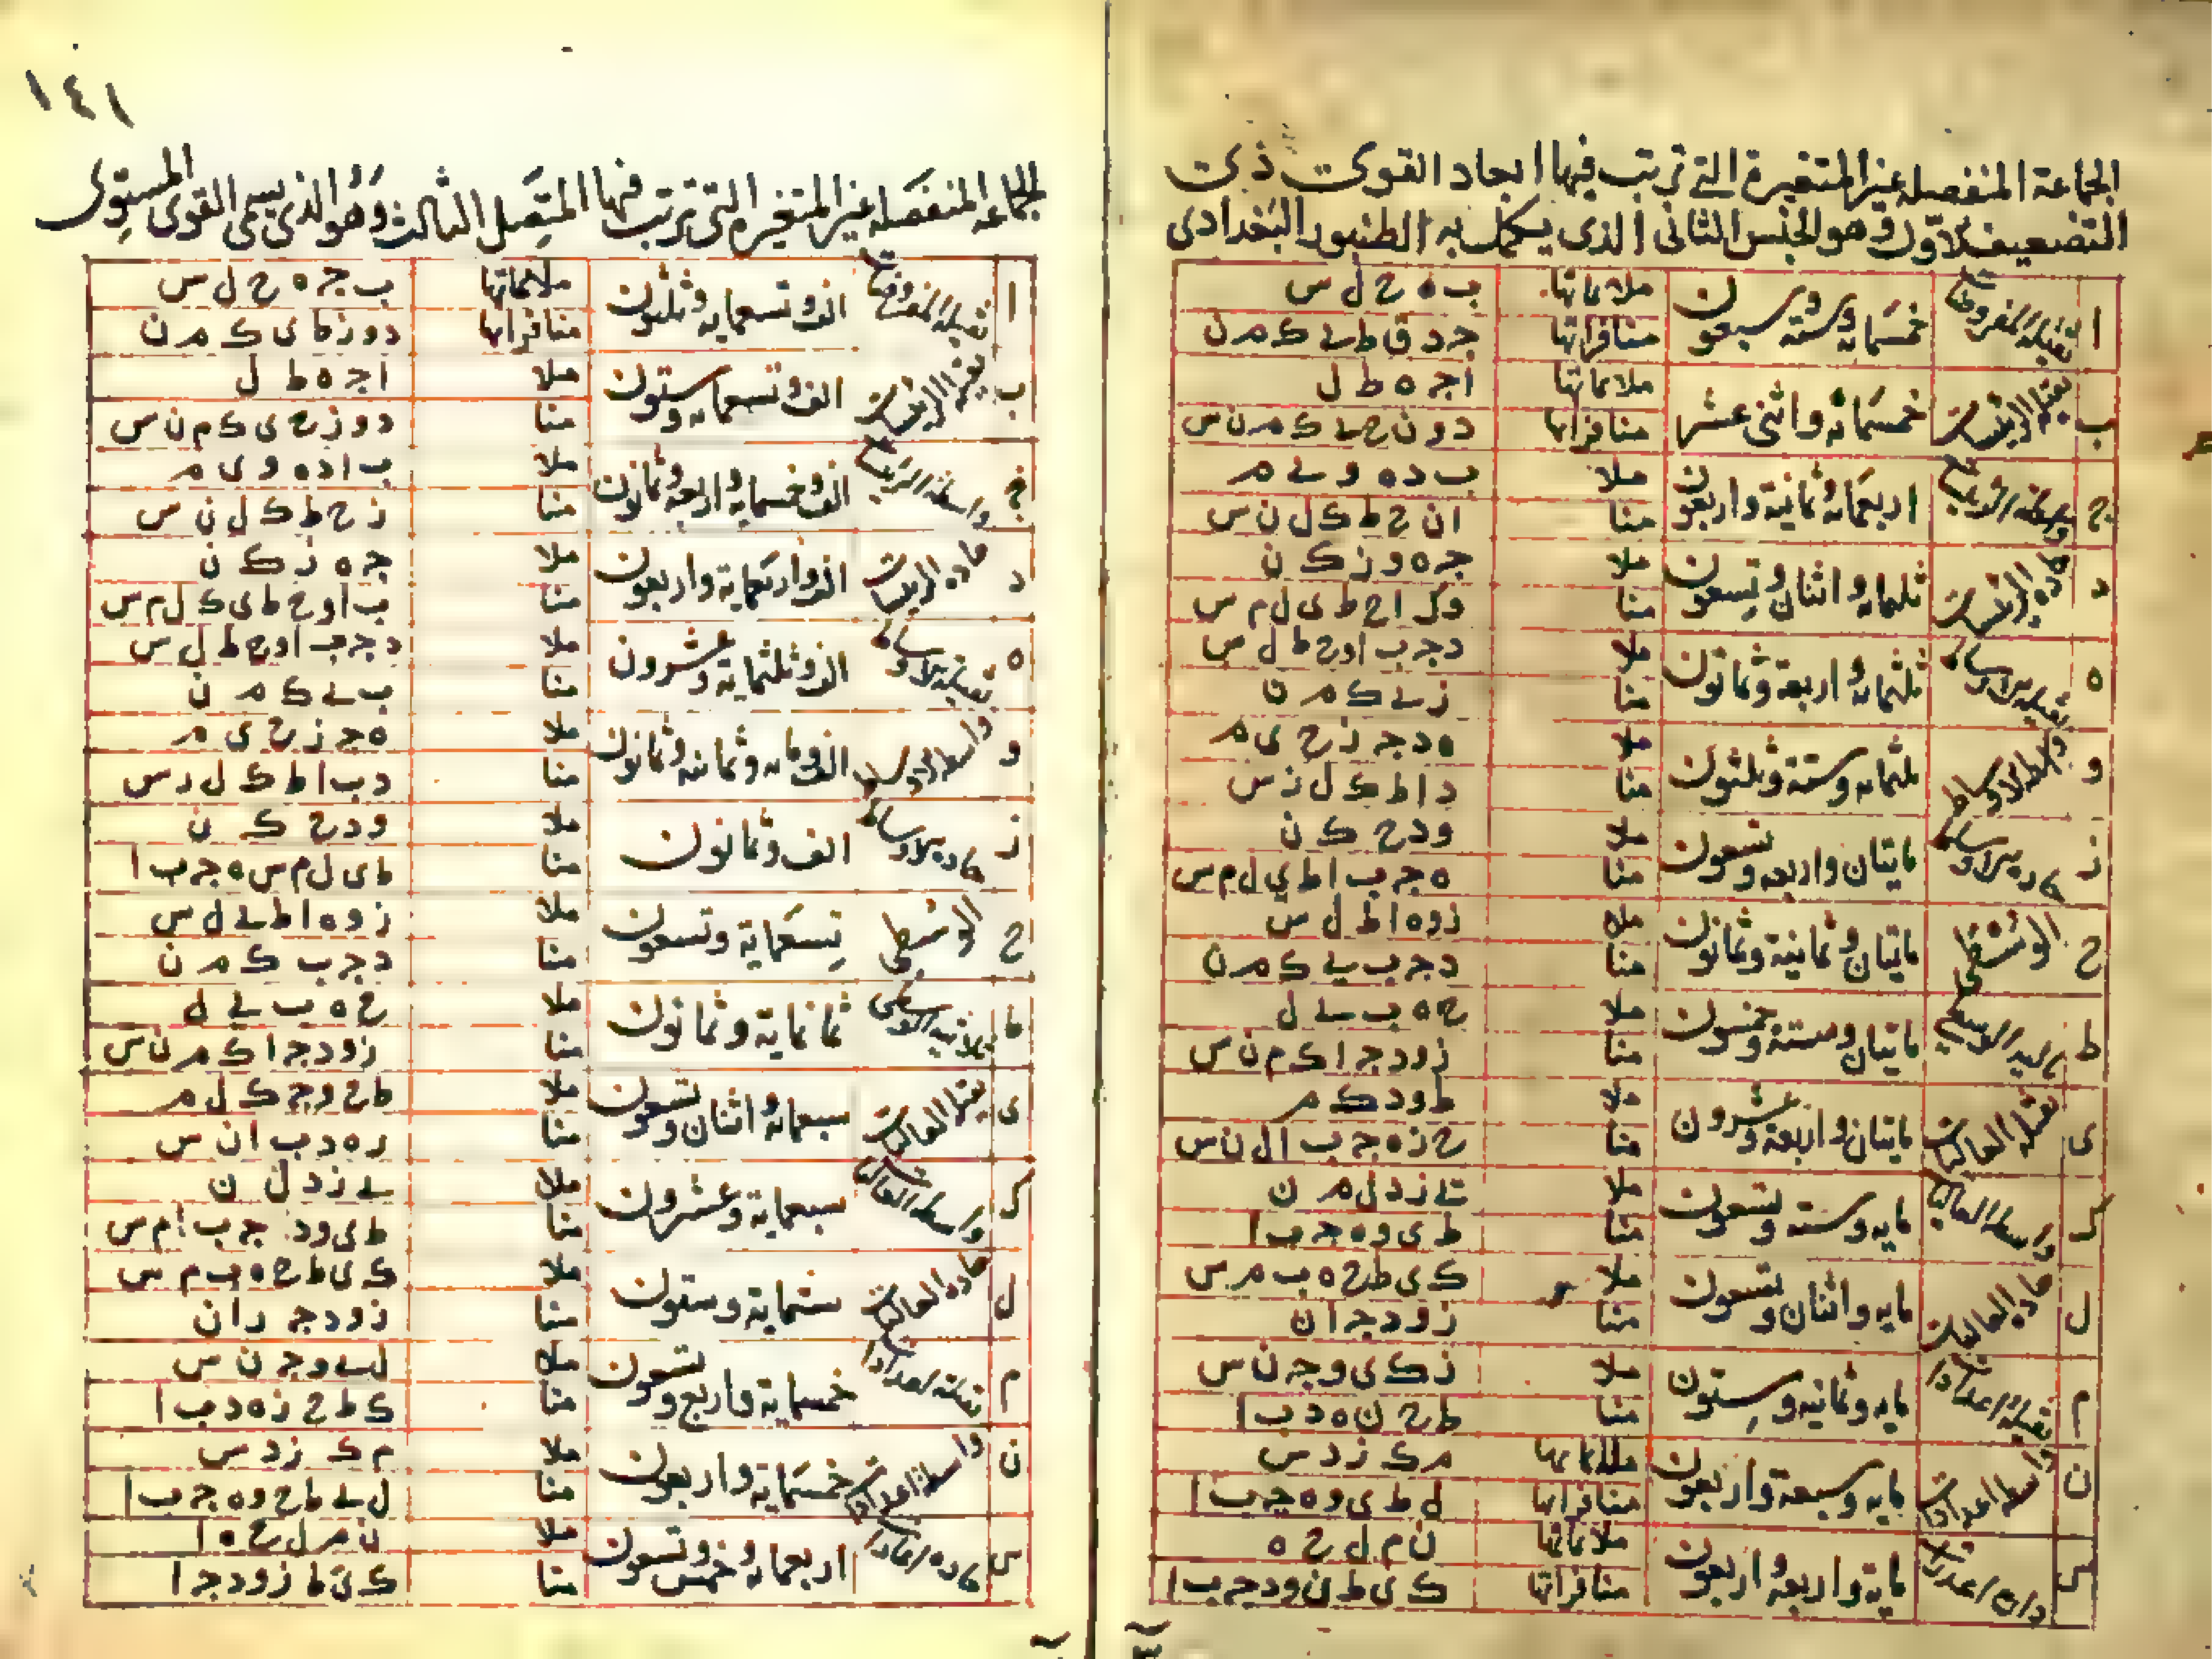 الجماعة المنفصله غير المتغيرة التى ترتب فيها ابعاد القوى ذى
التضعيف الاول وهو الجنس الثانى الذى يكمل به الطنبور البغدادى
ا ثقيلة المفروضات خمسمايه وستة وسبعون ملائماتها ب ه ح ل س
منافراتها ج د و ط ى ك م ن
ب ثقيلة الرئيسات خمسمائة واثنى عشر ملائماتها ا ج ه ط ل
منافراتها د و ن ح ى ك م ن س
ج واسطة الرئيسات اربعمائة وثمانية واربعون ملا ب د ه و ى م
منا ا ن ح ط ك ل ن س
د حادة الرئيسات ثلثمايه واثنان وتسعون ملا ج ه و ز ك ن
منا ا ح ط ى ل م س
ه ثقيلة الاوساط ثلثمائة واربعة وثمانون ملا د ج ب ا و ح ط ل س
منا ز ى ك م ن
و واسطة الاوساط ثلثمايه وستة وثلثون ملا ه د ج ز ح ى م
منا د ا ط ك ل ن س
ز حادة الاوساط مايتان واربعه وتسعون ملا و د ح ك ن
منا ه ج ب ا ط ى ل م س
ح الوسطى مايتان وثمانية وثمانون ملا ز و ه ا ط ل س
منا د ج ب ى ك م ن
ط الوسطى مايتان وستة وخمسون ملا ح ه ب ى ل
منا ز و د ج ا ك م ن س
ى ثقيلة العاليات مايتان واربعة وعشرون ملا ط و د ك م
منا ح ز ه ج ب ا ل ن س
ك واسطة العاليات مايه وستة وتسعون ملا ى ز د ل م ن
منا ط ى و ه ج ب ا
ل حادة العاليات مايه واثنان وتسعون ملا ك ى ط ح ه ب م س
منا ز و د ج ا ن
م مايه وثمانيه وستون ملا ز ك ى و ج ن س
منا ط ح ن ه د ب ا
ن مايه وسبعة واربعون ملائماتها م ك ز د س
منافراتها ل ط ى و ه ج ب ا
س ماية واربعة واربعون ملائماتها ن م ل ح ه
منافراتها ك ى ط ن و د ج ب ا
١٤١
الجماعه المنفصله غير المتغيره التى ترتب فيها المتصل الثالث وهو الذى يسمى القوى المستوى
ا ثقيلة المفروضات الف وتسعمايه وثلثون ملائماتها ب ج ه ح ل س
منافراتها د و ز ط ى ك م ن
ب ثقيلة الرئيسات الف وتسعمايه وستون ملا ا ج ه ط ل
منا د و ز ح ى ك م ن س
ج واسطة الرئيسات الف وخمسمايه واربعة وثمانون ملا ب ا د ه و ى م
منا ز ح ط ك ل ن س
د حادة الرئيسات الف واربعمايه واربعون ملا ج ه ز ك ن
منا ب ا و ح ط ى ك ل م س
ه ثقيلة الاوساط الف وثلثمايه وعشرون ملا د ج ب ا و ح ط ل س
منا ب ى ك م ن
و واسطة الاوساط الف ومايه وثمانيه وثمانون ملا ه ج ز ح ى م
منا د ب ا ط ك ل د س
ز حادة الاوساط الف وثمانون ملا و د ح ك ن
منا ط ى ل م س ه ج ب ا
ح الوسطى تسعماية وتسعون ملا ز و ه ا ط ى ل س
منا د ج ب ك م ن
ط الوسطى ثمانماية وثمانون ملا ح ه ب ى ل
منا ز و د ج ا ك م ن س
ى ثقيلة العاليات سبعمائة واثنان وتسعون ملا ط ح و ج ك ل م
منا ر ه د ب ا ن س
ك واسطة العاليات سبعماية وعشرون ملا ى ز د ل ن
منا ط ى و د ج ب ا م س
ل حادة العاليات ستماية وستون ملا ك ى ط ح ه ب م س
منا ز و د ج ر ا ن
م خمسماية واربع وتسعون ملا ل ى و ج ن س
منا ك ط ح ز ه د ب ا
ن خمسماية واربعون ملا م ك ز د س
منا ل ى ط ح و ه ج ب ا
س اربعمايه وخمس وتسعون ملا ن م ل ح ه ا
منا ك ى ط ز و د ج ا